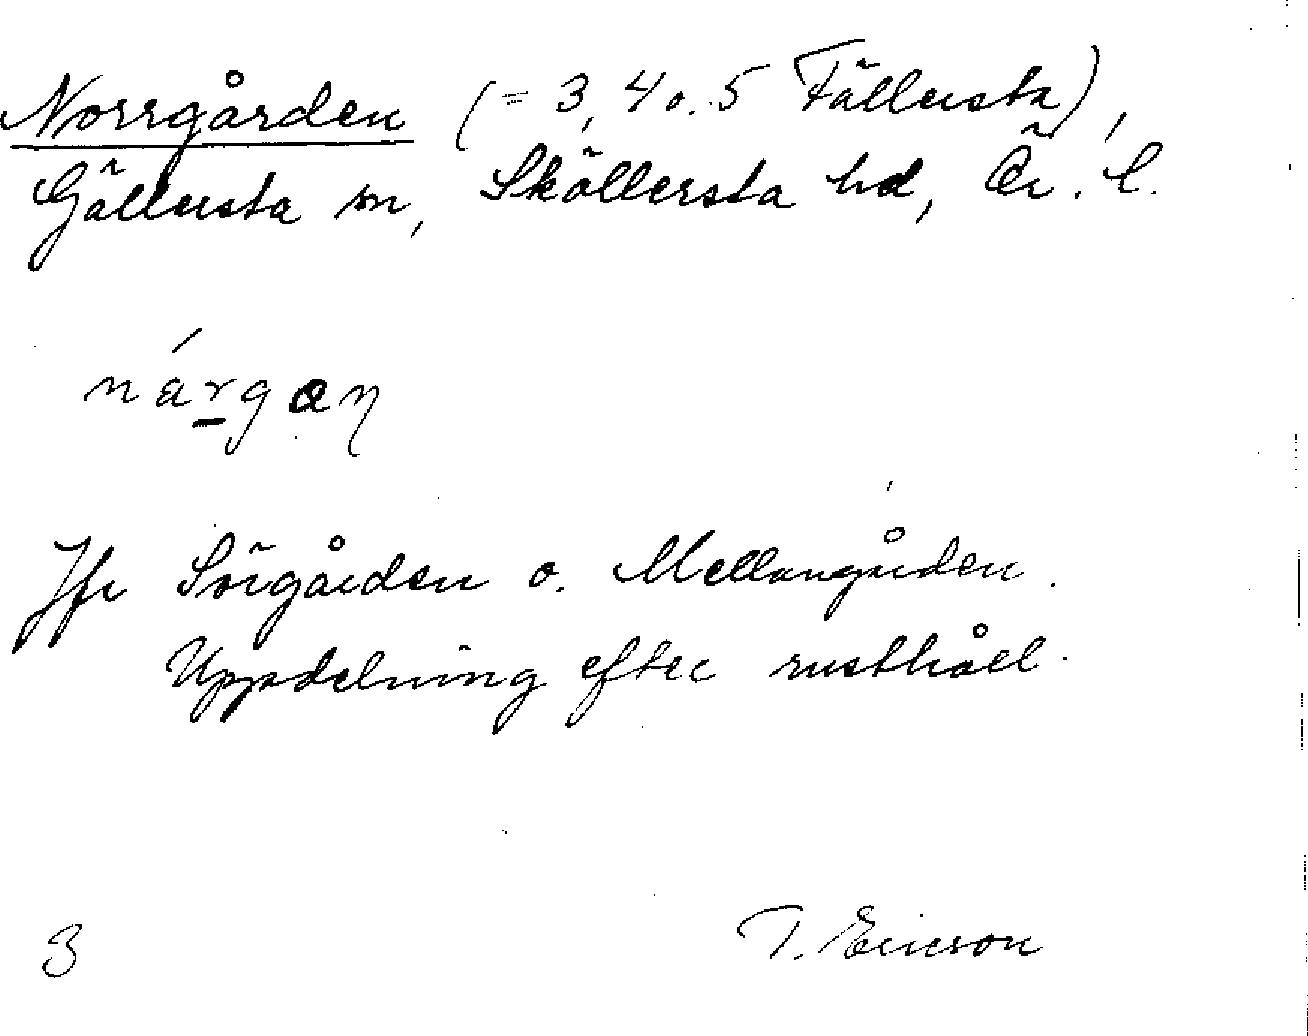 Norrgården (= 3, 4 o. 5 Fällersta),
Gällersta sn, Sköllersta hd, Ör. l.
Jfr Sörgården o. Mellangården.
Uppdelning efter rusthåll.
3
T. Ericson